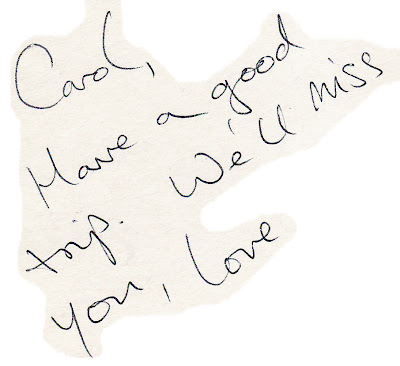 Carol,
Have a good
trip. We'll miss
you, Love